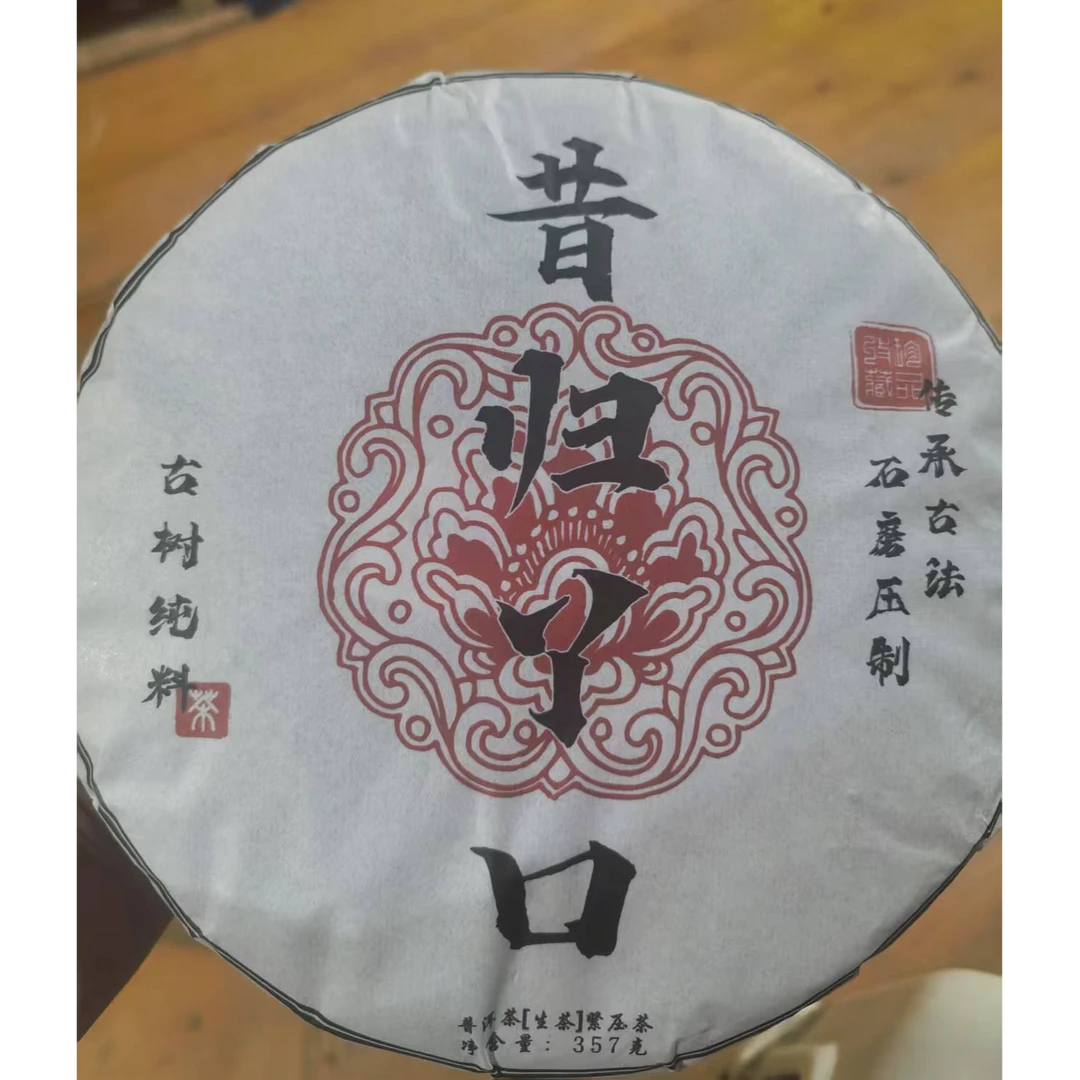 昔归丫口
珍品收藏
传承古法
石磨压制
古树纯料
茶
普洱茶[生茶]紧压茶
净含量：357克